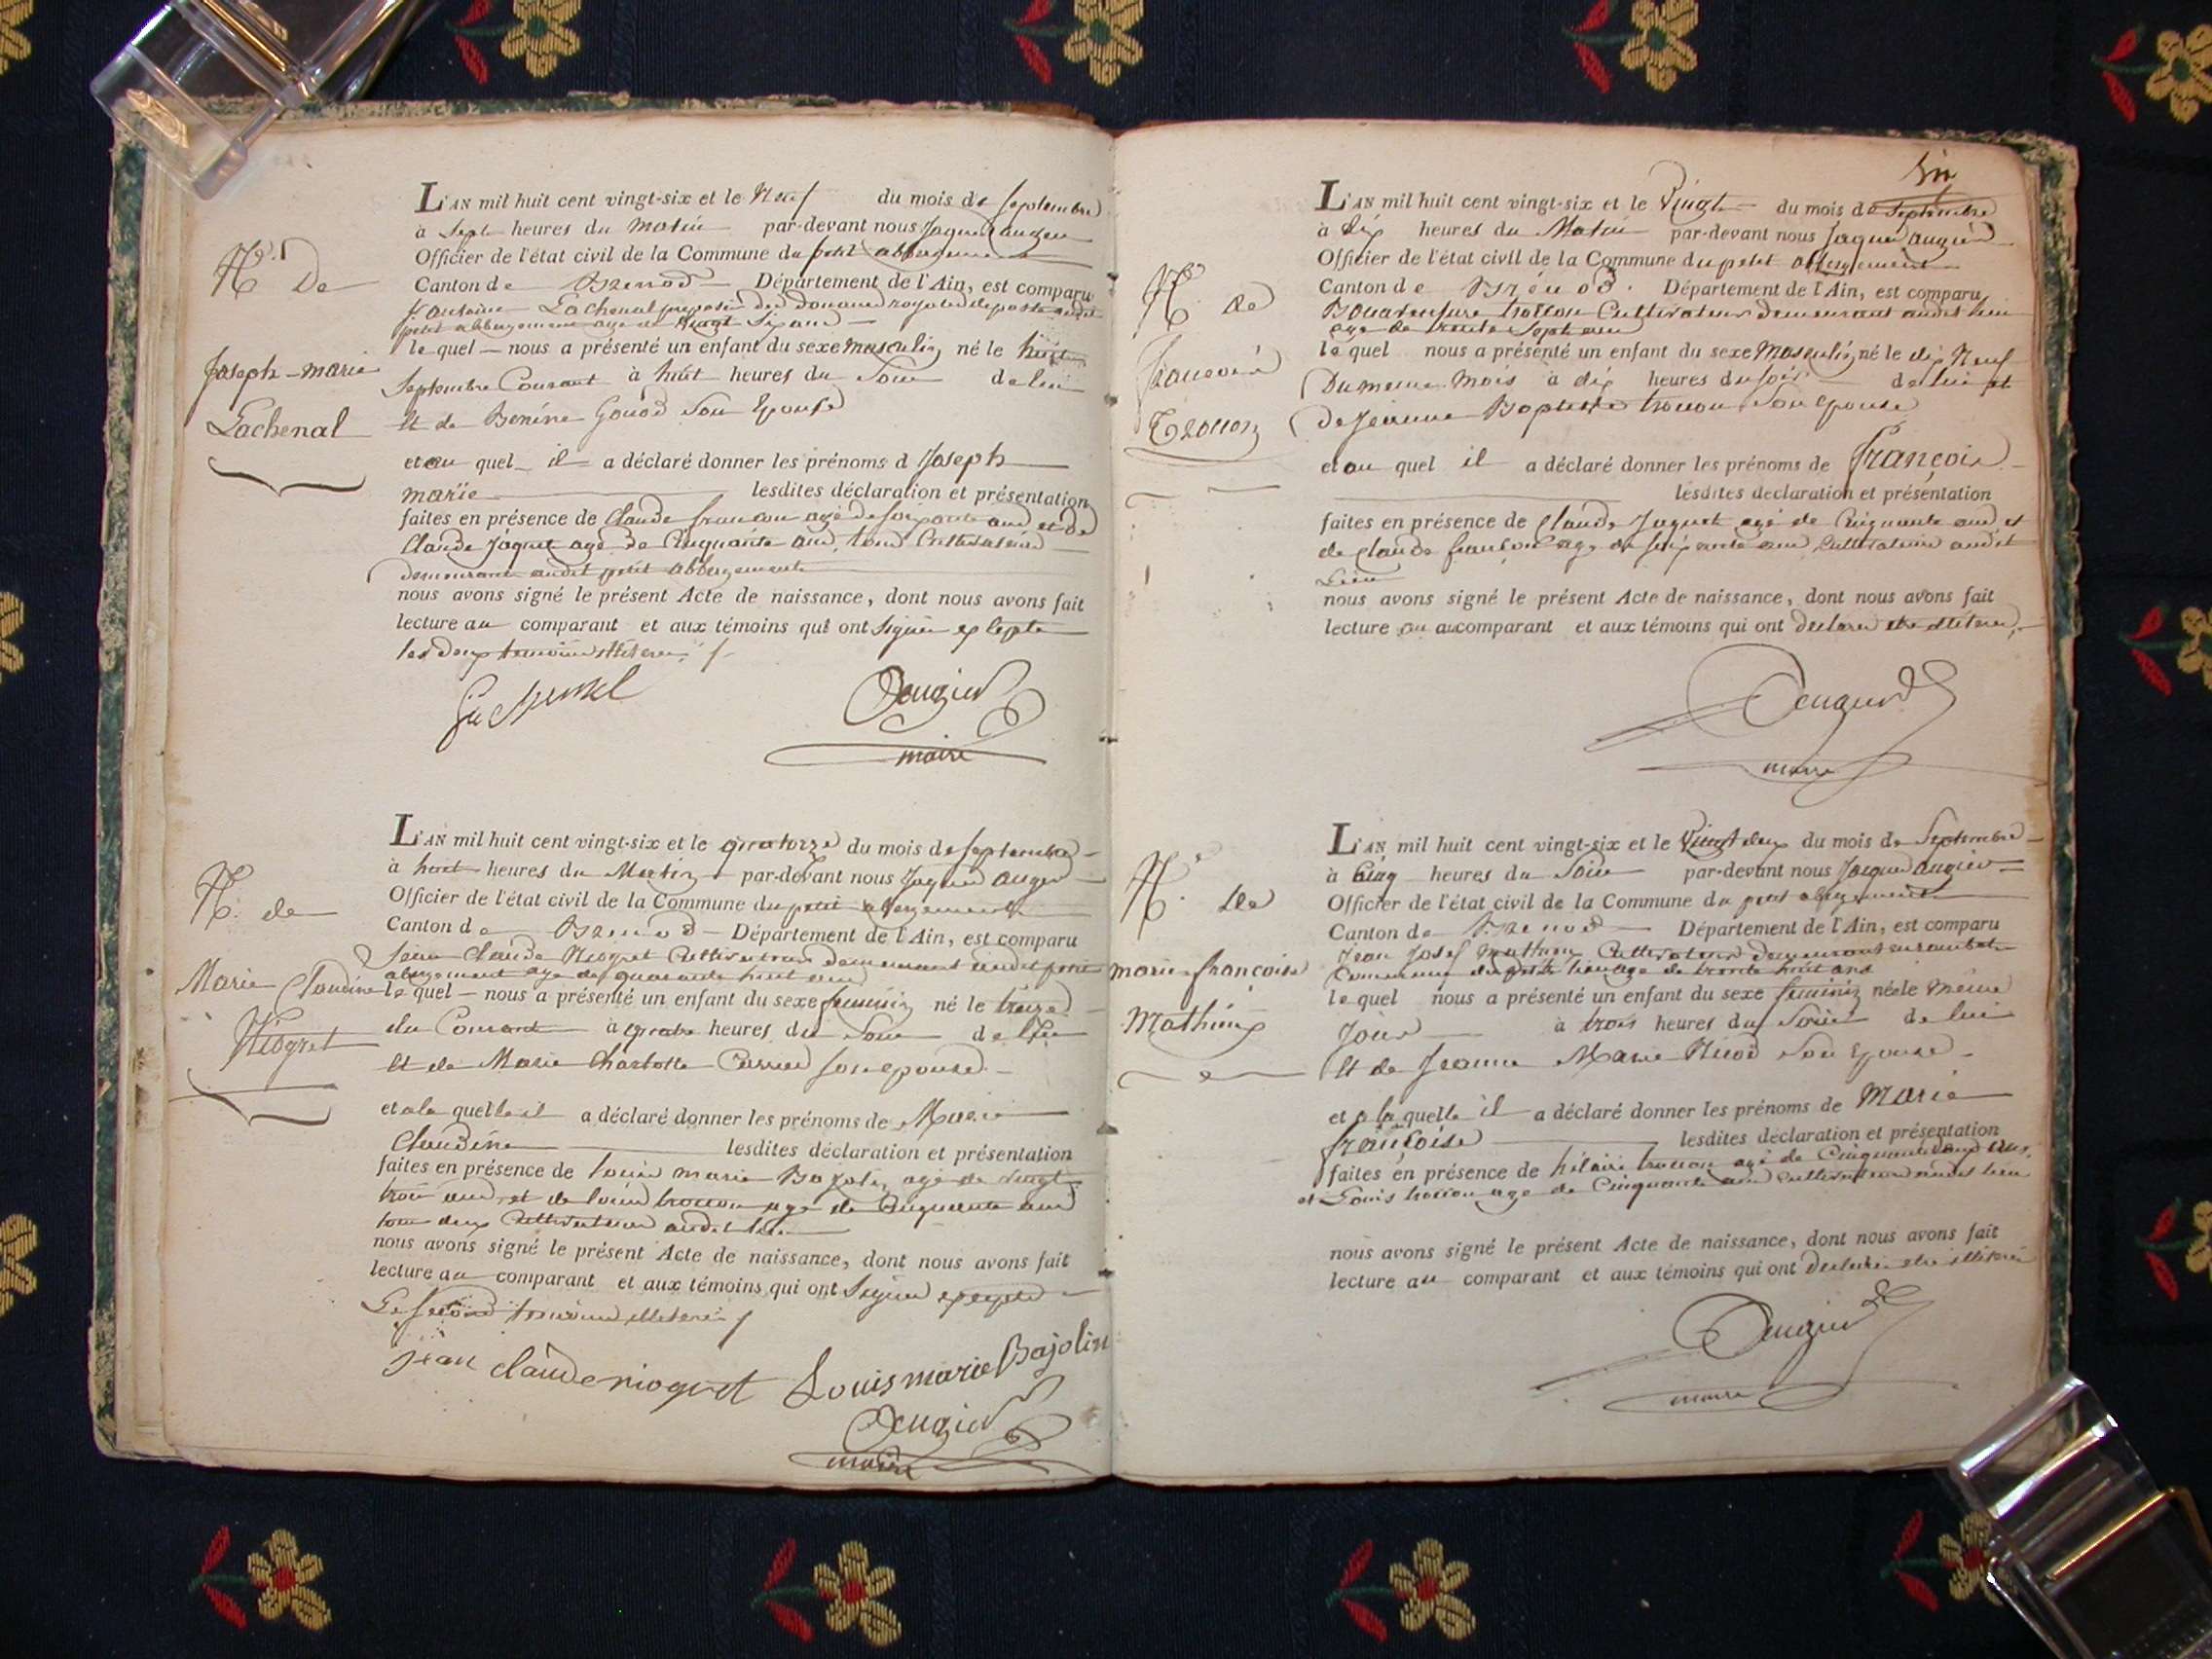 N.ce De
Joseph-marie
Lachenal
L'AN mil huit cent vingt-six et le Neuf du mois de septembre
à sept heures du matin par-devant nous Jaques augier
Officier de l'état civil de la Commune du petit abbergement
Canton de Brenod Département de l'Ain, est comparu
Lachenal preposé des Douanes royales de poste audit
petit abbergement agé de vingt six ans
le quel nous a présenté un enfant du sexe masculin né le huit
septembre Courant à huit heures du Soir de lui
Et de Benine Gouod Son Epouse
et au quel il a déclaré donner les prénoms d Joseph
marie lesdites déclaration et présentation
faites en présence de Claude francon agé de soixante ans et de
Claude Jaquet agé de Cinquante ans, tous Cultivateurs
demeurant audit petit abbergement
nous avons signé le présent Acte de naissance, dont nous avons fait
lecture au comparant et aux témoins qui ont signé excepte
les deux temoins illiteres
Lachenal
augier
maire
N.ce de
Marie Claudine
Niogret
L'AN mil huit cent vingt-six et le quatorze du mois de septembre
à huit heures du Matin par-devant nous Jaques augier
Officier de l'état civil de la Commune du petit abergement
Canton de Brenod Département de l'Ain, est comparu
Jean Claude Niogret Cultivateur demeurant audit petit
abergement age de quarante huit ans
le quel nous a présenté un enfant du sexe feminin né le treize
du Courant à quatre heures du Soir de lui
Et de Marie Charlotte Carrier son epouse
et a la quelle il a déclaré donner les prénoms de Marie
Claudine lesdites déclaration et présentation
faites en présence de louis marie Bajolin agé de vingt
trois ans et de louis trocon age de Cinquante ans
tous deux Cultivateurs audit lieu
nous avons signé le présent Acte de naissance, dont nous avons fait
lecture au comparant et aux témoins qui ont Signé excepte
Le second temoins illitere
jean claude niogret Louis marie Bajolin
augier
maire
N.ce de
francois
Trocon
L'AN mil huit cent vingt-six et le Vingt du mois de septembre
à dix heures du Matin par-devant nous Jaques augier
Officier de l'état civil de la Commune du petit abergement
Canton de Brénod. Département de l'Ain, est comparu
Bonaventure trocon Cultivateur demeurant audit lieu
age de trente Sept ans
le quel nous a présenté un enfant du sexe Masculin né le dix Neuf
Du meme Mois à dix heures du soir de lui et
de Jeanne Baptiste trocon Son epouse
et au quel il a déclaré donner les prénoms de françois
lesdites déclaration et présentation
faites en présence de Claude Jaquet agé de Cinquante ans et
de Claude francon age de soixante ans Cultivateurs audit
Lieu
nous avons signé le présent Acte de naissance, dont nous avons fait
lecture au comparant et aux témoins qui ont declaré etre illiteres
augier
maire
N.ce De
marie-françoise
Mathieu
L'AN mil huit cent vingt-six et le Vingt deux du mois de Septembre
à Cinq heures du Soir par-devant nous Jacques augier
Officier de l'état civil de la Commune du petit abergement
Canton de Brenod Département de l'Ain, est comparu
Jean Josef Cultivateur demeurant
Commune du petit age de trente huit ans
le quel nous a présenté un enfant du sexe feminin né le même
Jour à trois heures du Soir de lui
Et de Jeanne Marie Nicod Son Epouse
et a la quelle il a déclaré donner les prénoms de Marie
françoise lesdites déclaration et présentation
faites en présence de hilaire trocon agé de Cinquante deux ans
et Louis trocon age de Cinquante ans Cultivateurs audit lieu
nous avons signé le présent Acte de naissance, dont nous avons fait
lecture au comparant et aux témoins qui ont declaré etre illiteré
augier
maire